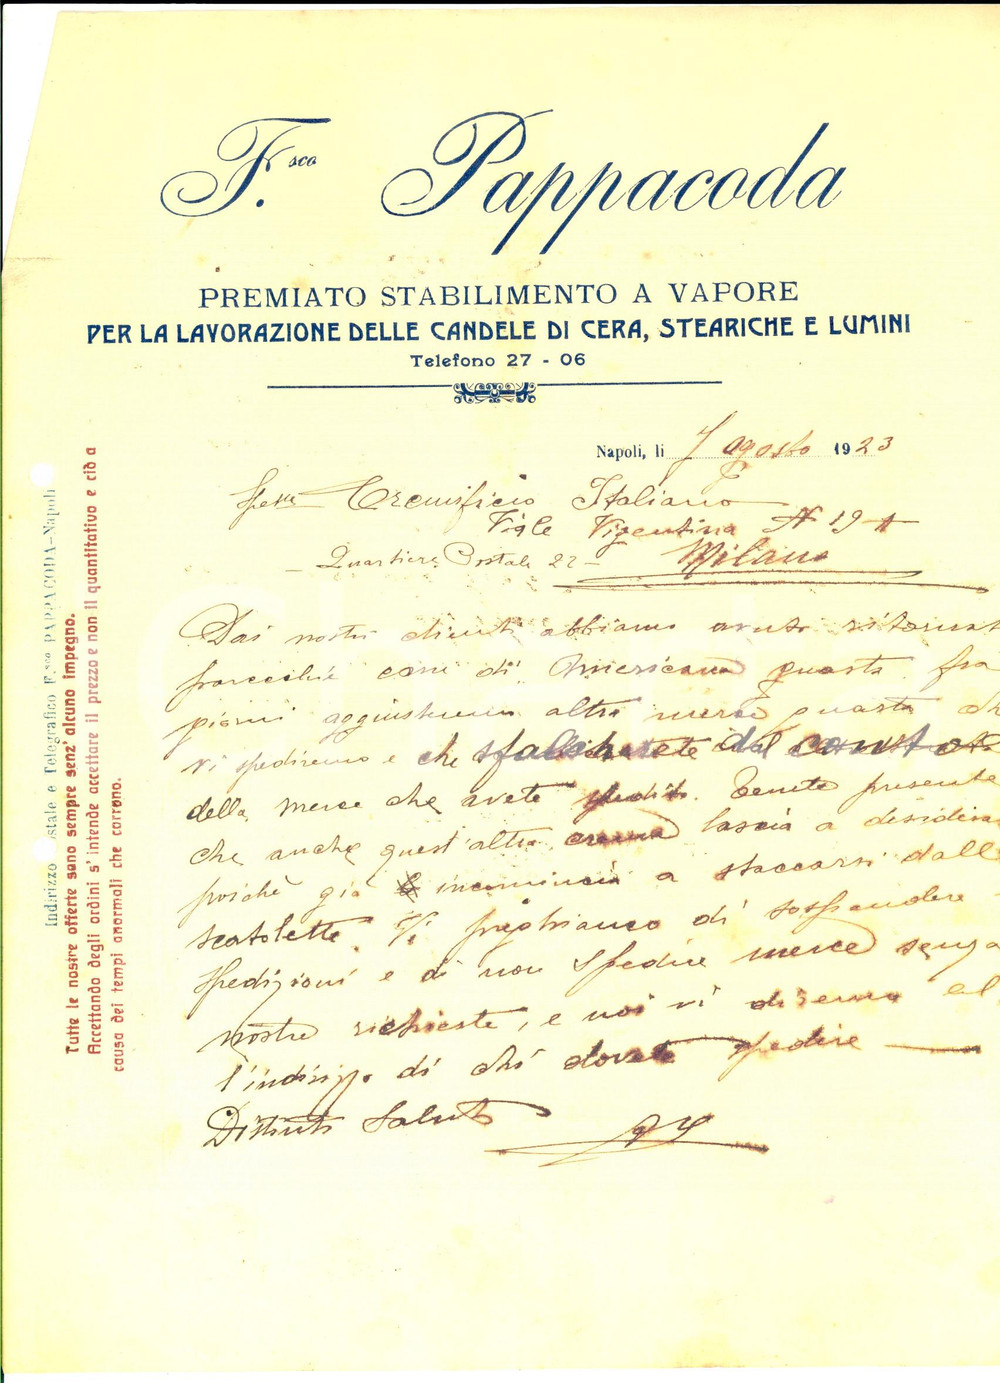 F.sco Pappacoda
PREMIATO STABILIMENTO A VAPORE
PER LA LAVORAZIONE DELLE CANDELE DI CERA, STEARICHE E LUMINI
Telefono 27 - 06
Napoli, li 7 agosto 1923
Spett Cremificio Italiano
Viale Vigentina N 19-A
Quartiere Postale 22 - Milano
Dai nostri clienti abbiamo avuto ritornat
parecchie casse di Americana guasta fra
giorni aggiusteremo altra merce guasta ch
vi spediremo e che dal
della merce che avete spedito. Tenete presente
che anche quest'altra crema lascia a desidera
poichè già incomincia a staccarsi dall
scatolette. Vi preghiamo di sospendere
spedizioni e di non spedire merce senza
nostre richieste, e noi vi diremo al
l'indirizzo di chi dovete spedire
Distinti Saluti
Indirizzo stale e Telegrafico F.sco PAPPACODA-Napoli
Tutte le nostre offerte sono sempre senz' alcuno impegno.
Accettando degli ordini s' intende accettare il prezzo e non il quantitativo e ciò a
causa dei tempi anormali che corrono.